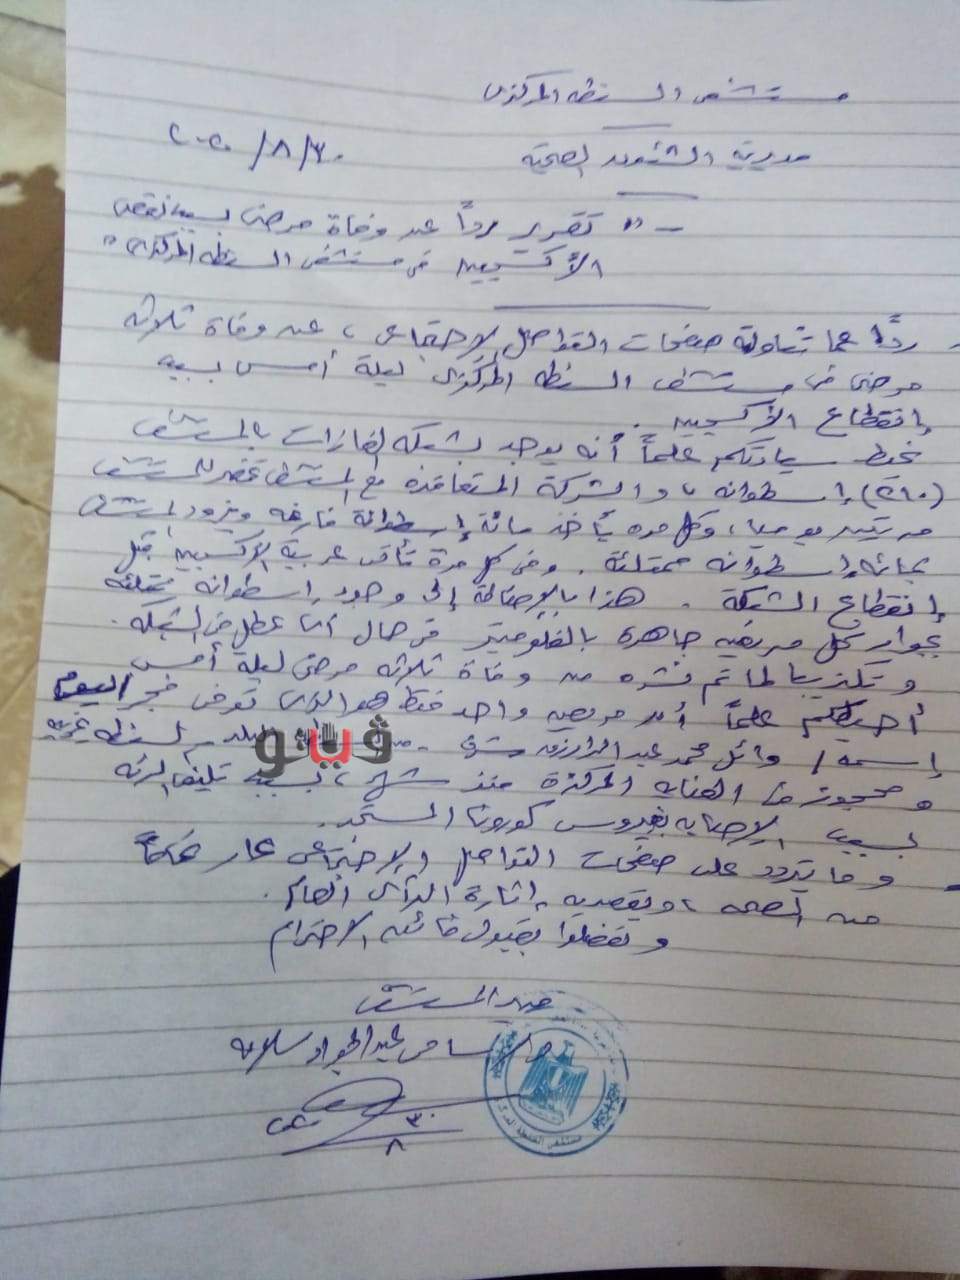 مستشفى السنطه المركزى
مديرية الشئون الصحية
٢٠٢٠/٨/٣٠
- " تقرير رداً عن وفاة مرضى بسبب نقص
الأكسجين فى مستشفى السنطه المركزى "
- رداً عما تناولته صفحات التواصل الإجتماعى، عن وفاة ثلاثه
مرضى فى مستشفى السنطه المركزى ليلة أمس بسبب
إنقطاع الأكسجين.
نحيط سيادتكم علماً أنه يوجد بشبكه الغازات بالمستشفى
إسطوانه، والشركة المتعاقده مع المستشفى تحضر للمستشفى
مرتين يومياً، وكل مره يأخذ مائة إسطوانة فارغه ويزود المستشفى
بمائه إسطوانه ممتلئة. وفى كل مرة تأتى عربية الأكسجين قبل
إنقطاع الشبكة. هذا بالإضافة إلى وجود إسطوانه ممتلئه
بجوار كل مريض جاهزة بالفلوميتر فى حال أى عطل فى الشبكه.
وتكذيباً لما تم نشره من وفاة ثلاثه مرضى ليلة أمس
أحيطكم علماً أن مريض واحد فقط هو الذى توفى فجر اليوم
إسمه / وائل محمد عبد الرازق البلد - السنطه غربيه
ڤيتو
ومحجوز فى العناية المركزة منذ بسبب تليف الرئه
بسبب الإصابه بفيروس كورونا المستجد.
- وما يتردد على صفحات التواصل الإجتماعى عار تماماً
من الصحه، ويقصد به إثارة الرأى العام.
وتفضلوا بقبول فائق الاحترام
مدير المستشفى
د/ سامى عبد الجواد سلامه
٣٠
٨
٢٠٢٠
مستشفى السنطة المركزى